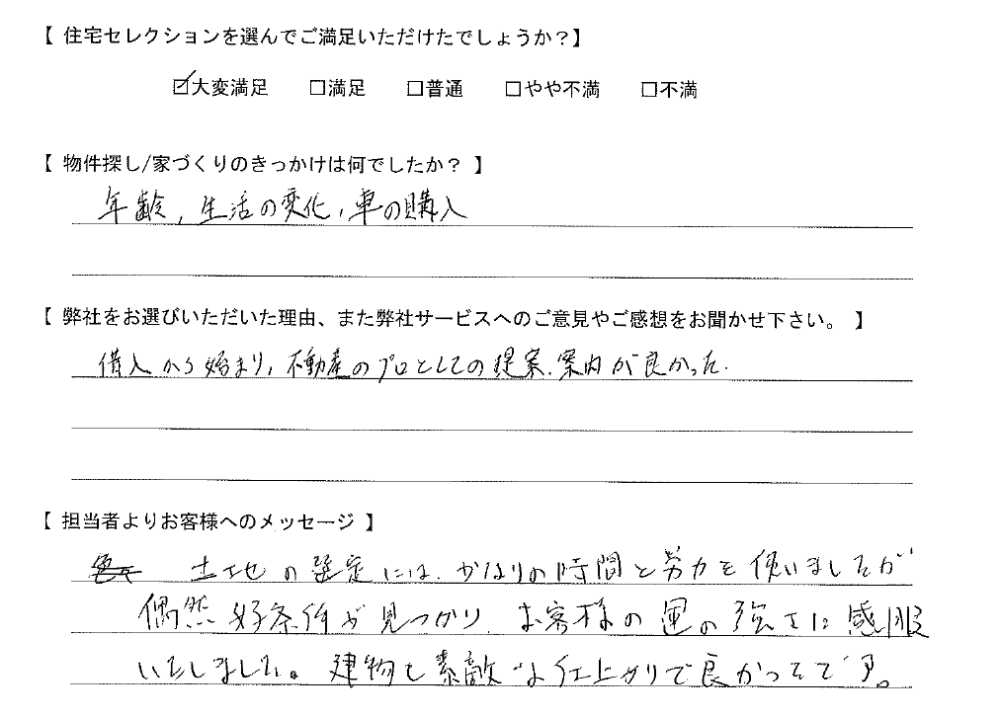 【 住宅セレクションを選んでご満足いただけたでしょうか?】
☑大変満足 □満足 □普通 □やや不満 □不満
【 物件探し/家づくりのきっかけは何でしたか? 】
年齢, 生活の変化, 車の購入
【 弊社をお選びいただいた理由、また弊社サービスへのご意見やご感想をお聞かせ下さい。 】
借入から始まり, 不動産のプロとしての提案、案内が良かった.
【 担当者よりお客様へのメッセージ 】
土地の選定には、かなりの時間と労力を使いましたが
偶然好条件が見つかり、お客様の運の強さに感服
いたしました。建物も素敵な仕上がりで良かったです。